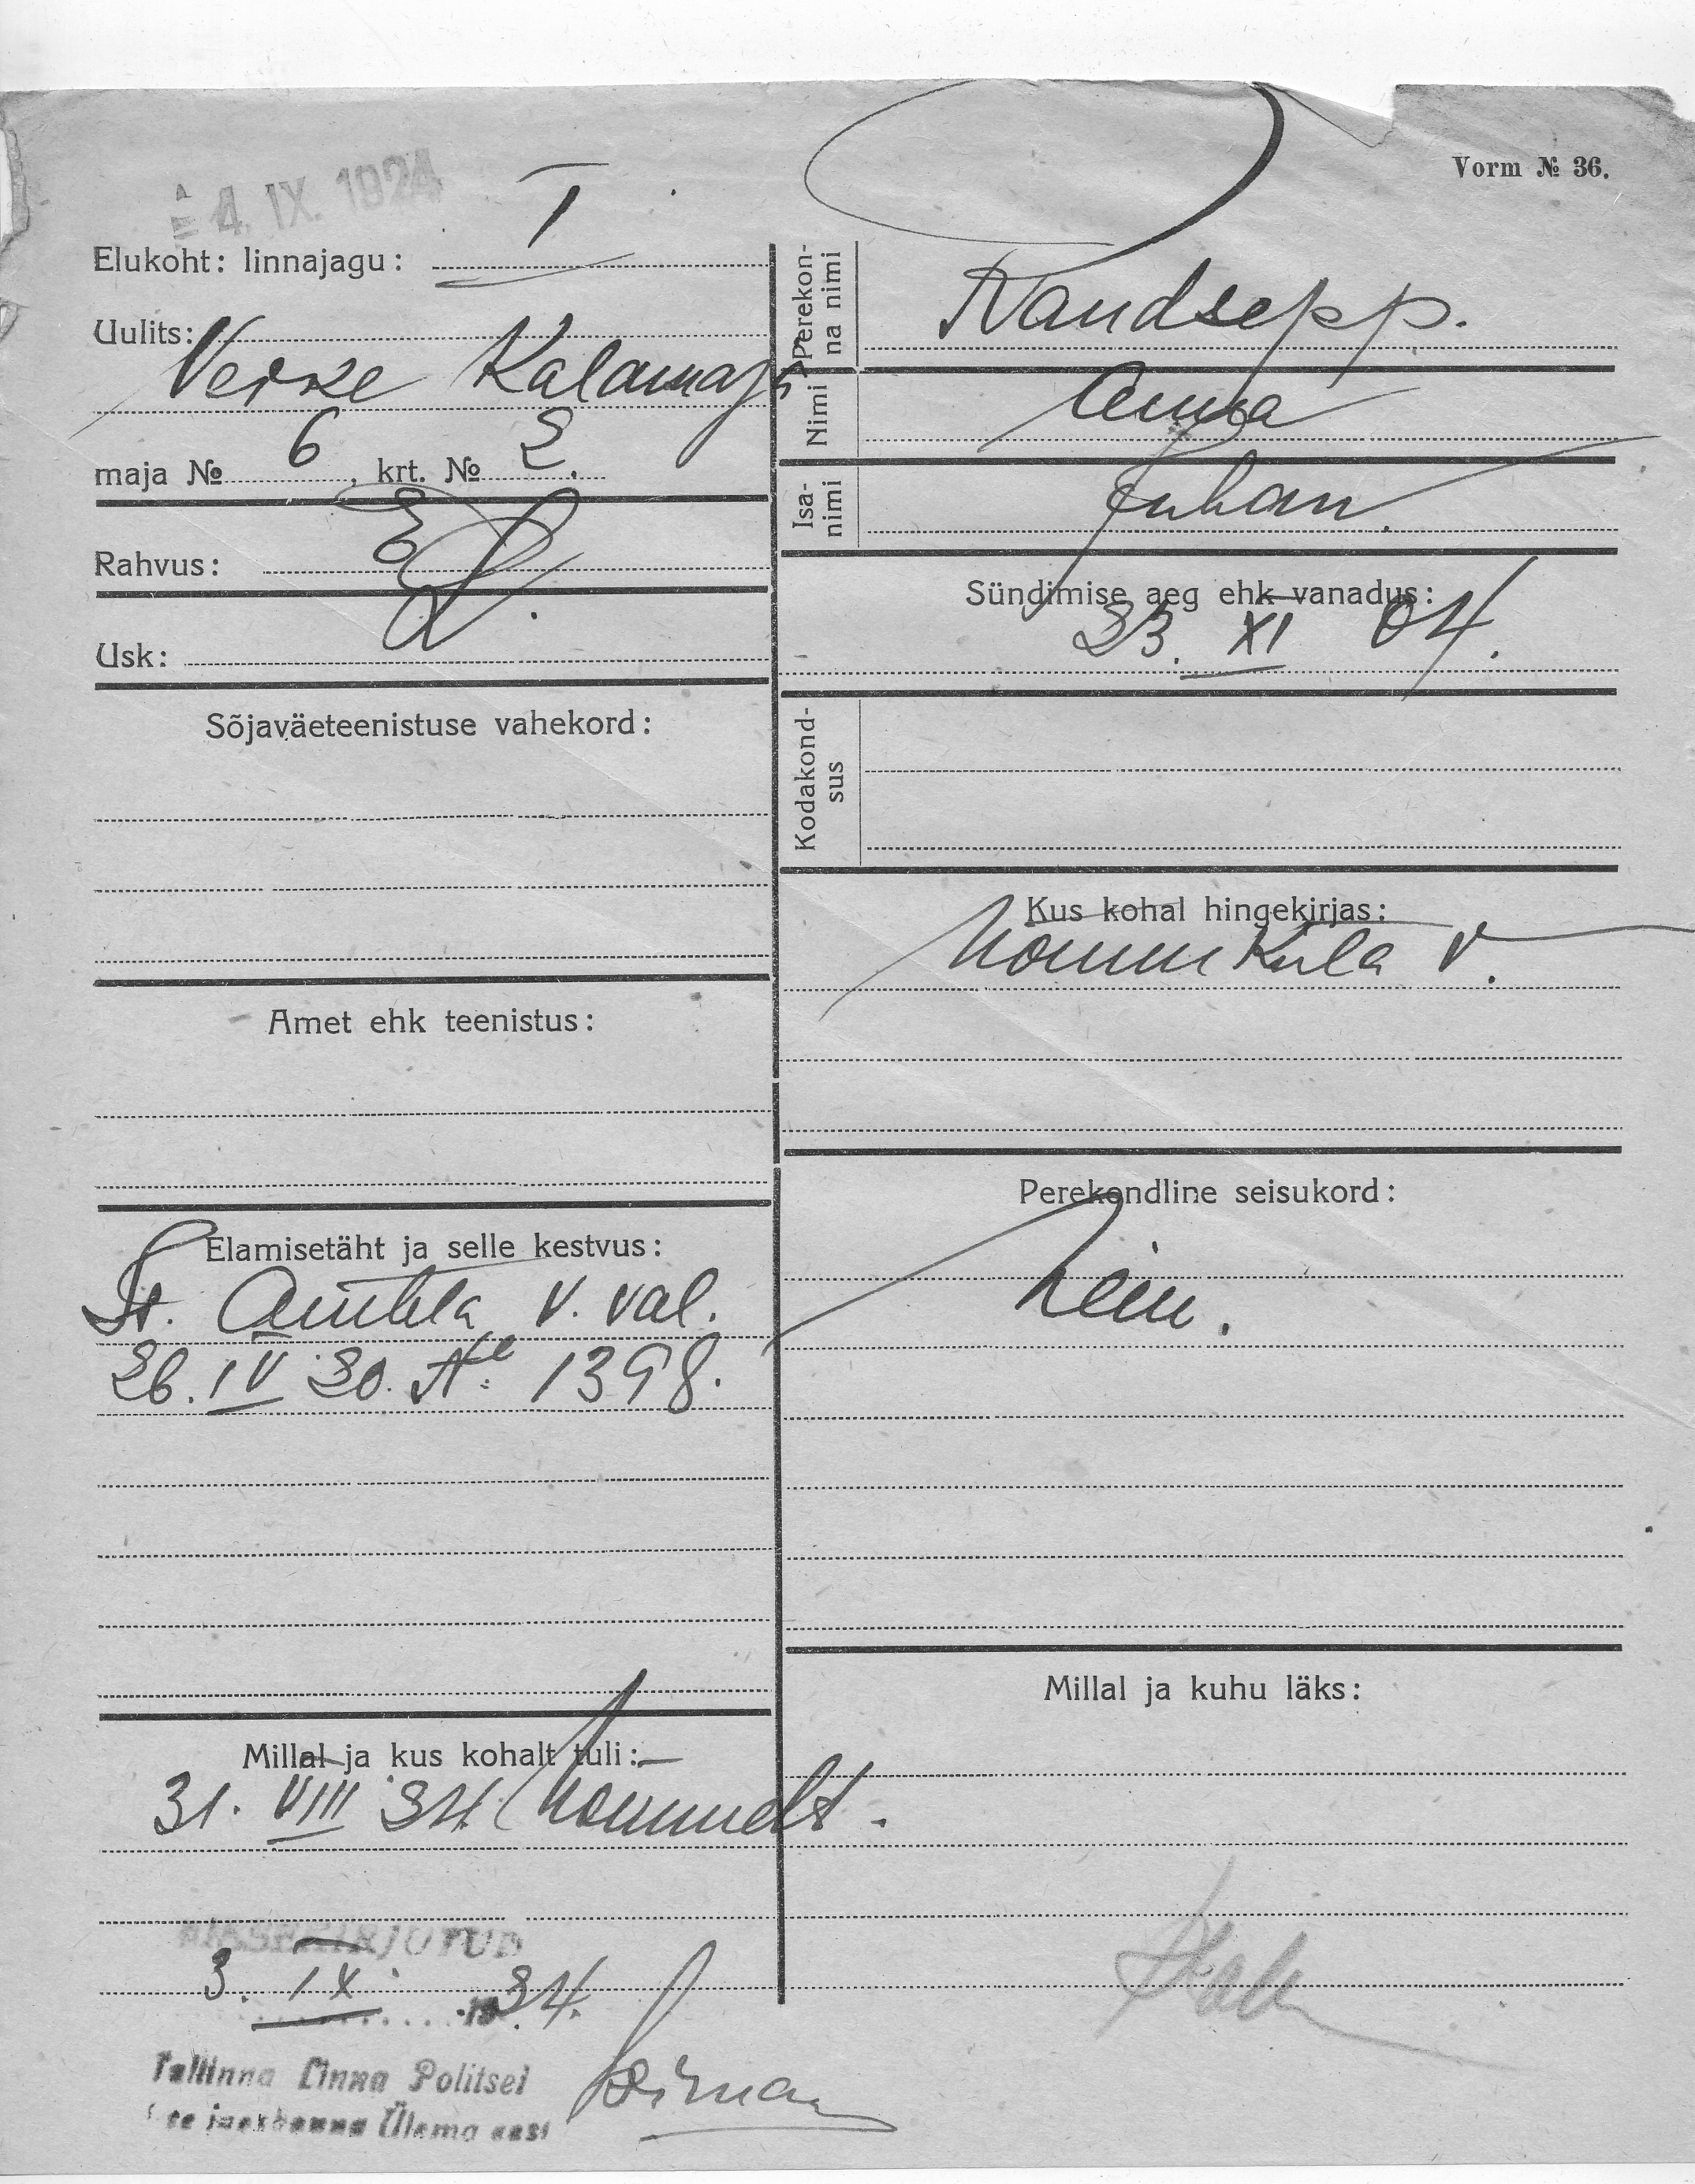 4. IX. 1924
Vorm № 36.
Elukoht: linnajagu: I
Uulits:
Veike Kalamaja
maja № 6, krt. № 2.
Rahvus: E
Usk: L.
Sõjaväeteenistuse vahekord:
Amet ehk teenistus:
Elamisetäht ja selle kestvus:
It. Ambla v. val.
26. IV 20. № 1398.
Millal ja kus kohalt tuli:
31. VIII 24. Nõmmelt.
SISSEKIRJUTUD
3. IX. 1924.
Tallinna Linna Politsei
jaoskonna Ülema eest
Perekonna nimi
Raudsepp.
Nimi
Anna
Isanimi
Juhan.
Sündimise aeg ehk vanadus:
23. XI 04.
Kodakondsus
Kus kohal hingekirjas:
Nõmmküla v.
Perekondline seisukord:
Neiu.
Millal ja kuhu läks: